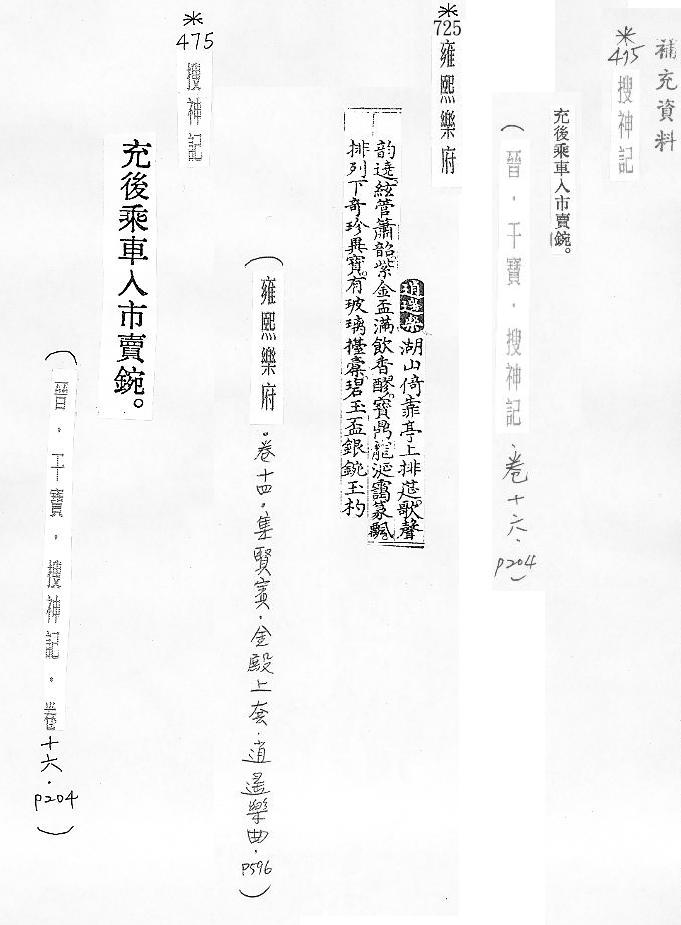 補充資料
*475
搜神記
充後乘車入市賣鋺。
(晉．干寶．搜神記．卷十六．P204)
*725
雍熙樂府
逍遙樂湖山倚靠亭上排筵歌聲
韵遶絃管簫韶紫金盃滿飲香醪寶鼎龍涎靄篆飄
排列下奇珍異寶有玻瓈擡橐碧玉盃銀鋺玉杓
(雍熙樂府．卷十四．集賢賓．金殿上套．逍遙樂曲．P596)
*475
搜神記
充後乘車入市賣鋺。
(晉．干寶．搜神記．卷十六．P204)